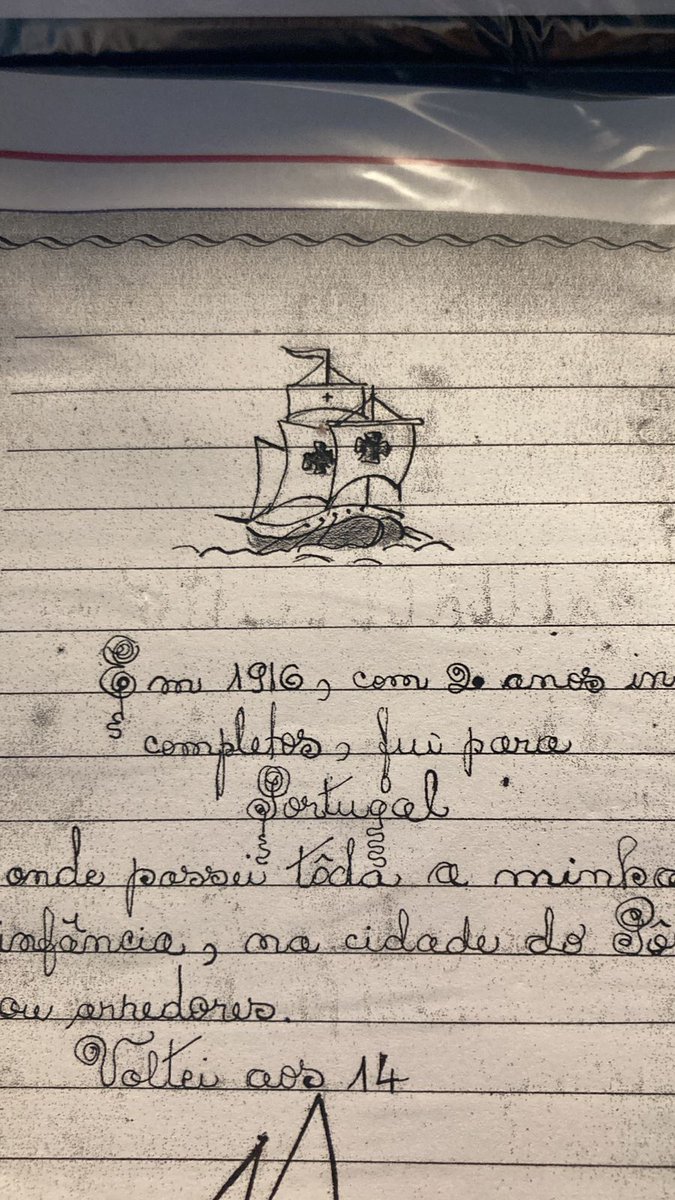 Em 1916, com 2 anos in
completos, fui para
Portugal
onde passei tôda a minha
infância, na cidade do Pô
ou arredores.
Voltei aos 14